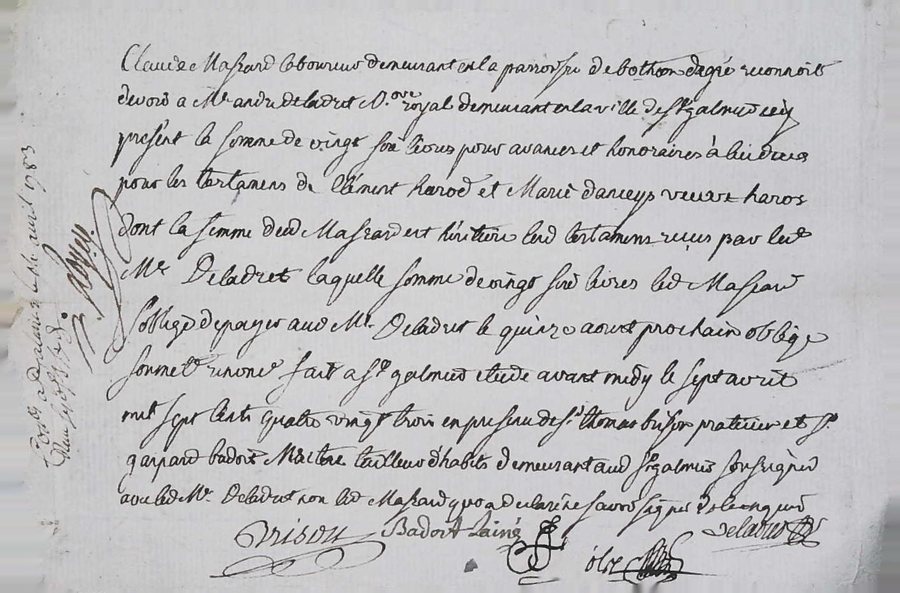 Claude Massard laboureur demeurant en la parroisse de bothéon de gré reconnoit
devoir a Mr andré deladret N.re royal demeurant en la ville de St galmier icy
présent la somme de vingt six livres pour avances et honoraires à lui dues
pour les testamens de Clément harod et Marie danceys veuve haros
dont la femme dud Massard est héritiere lesd testamens reçus par led
Mr Deladret laquelle somme de vingt six livres led Massard
s'oblige de payer aud Mr Deladret le quinze aoust prochain oblige
soumet renonce fait a St galmier étude avant midy le sept avril
mil sept cents quatre vingt trois en présence de Sr thomas brison praticien et Sr
gaspard badoit Maitre tailleur d'habits demeurant aud St galmier soussignés
avec led Mr Deladret non led Massard qui a déclaré ne savoir signer de ce enquis
Brison Badoit Lainé Deladret
avril 1783